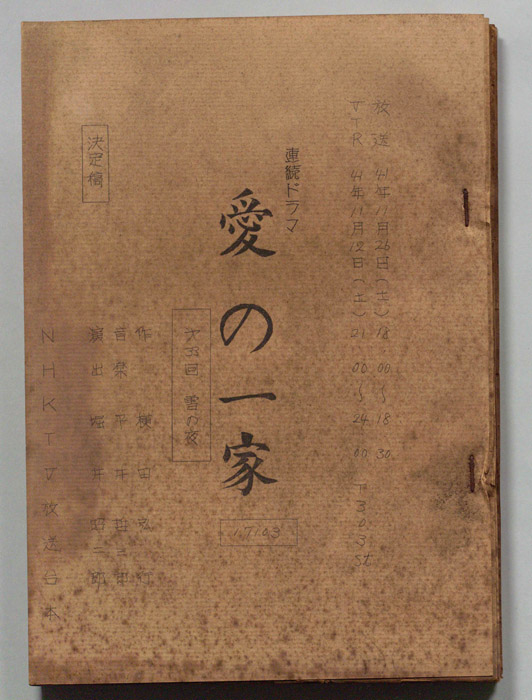 放送 41年11月26日(土)18.00〜18.30
VTR 41年11月12日(土)21.00〜24.00 T303st
連続ドラマ
愛の一家
17103
雪の夜
作 横田弘行
音楽 平井哲三郎
演出 堀井昭二郎
決定稿
NHKTV放送台本